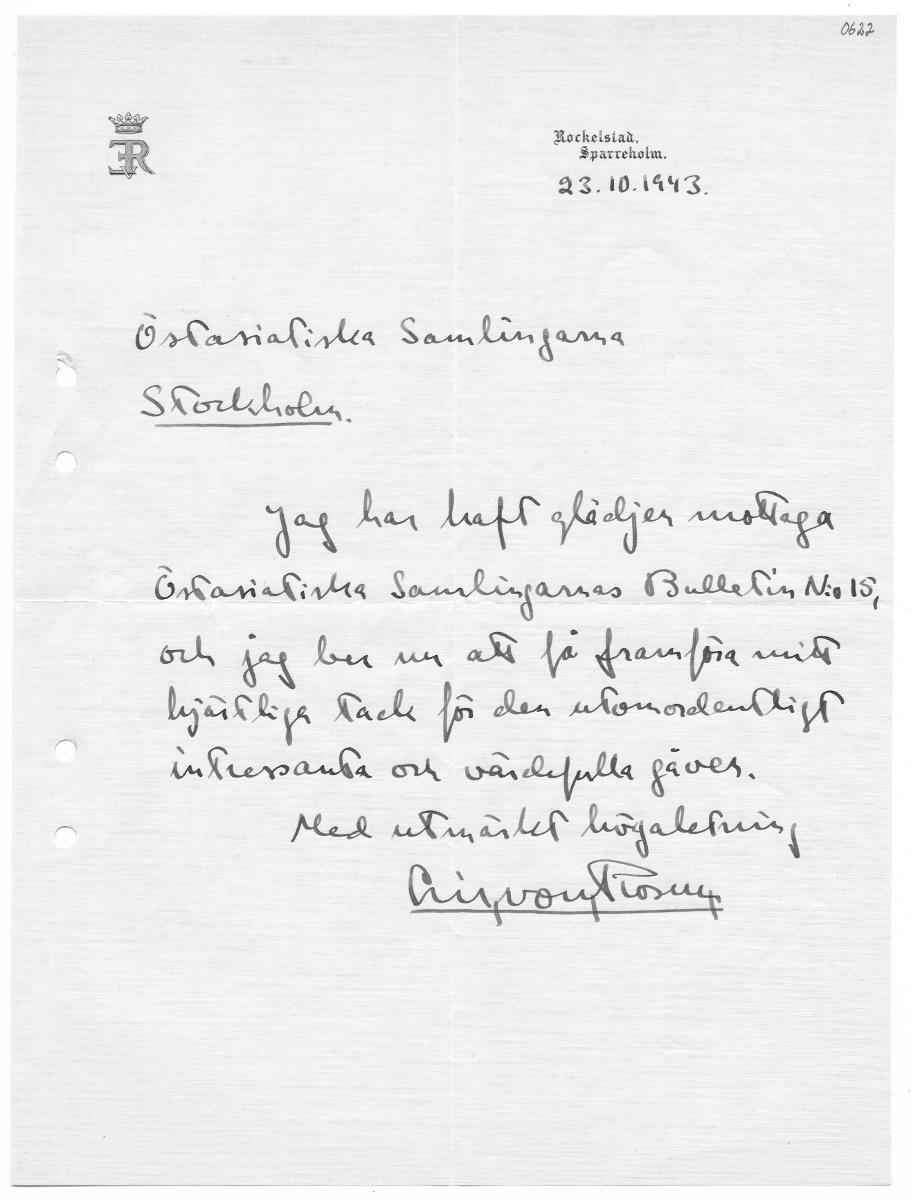 0622
ER
Rockelstad,
Sparreholm.
23.10.1943.
Östasiatiska Samlingarna
Stockholm.
Jag har haft glädjen mottaga
Östasiatiska Samlingarnas Bulletin N:o 15,
och jag ber nu att få framföra mitt
hjärtliga tack för den utomordentligt
intressanta och värdefulla gåvan.
Med utmärkt högaktning
Eric von Rosen